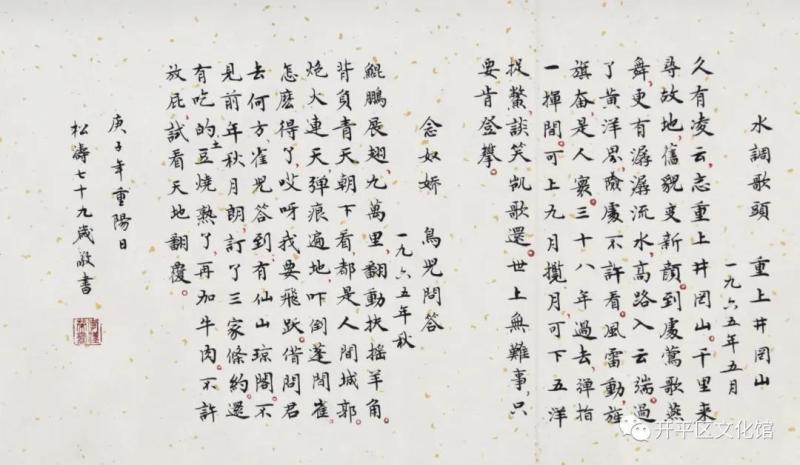 水調歌頭　重上井岡山
一九六五年五月
久有凌云志。重上井岡山。千里来
尋故地。舊貌变新顔。到處鶯歌燕
舞。更有潺潺流水。高路入云端。過
了黄洋界。險處不許看。風雷動。旌
旗奋。是人寰。三十八年過去。彈指
一揮間。可上九月攬月。可下五洋
捉鱉。談笑凱歌還。世上無難事。只
要肯登攀。
念奴娇　鳥兒問答
一九六五年秋
鯤鵬展翅。九萬里。翻動扶摇羊角。
背負青天朝下看。都是人間城郭。
炮火連天。彈痕遍地。吓倒蓬間雀。
怎麽得了。哎呀我要飛跃。借問君
去何方。雀兒答到。有仙山琼閣。不
見前年秋月朗。訂了三家條約。還
有吃的。土豆燒熟了。再加牛肉。不許
放屁。試看天地翻覆。
庚子年重陽日
松濤七十九歲敬書
开平区文化馆